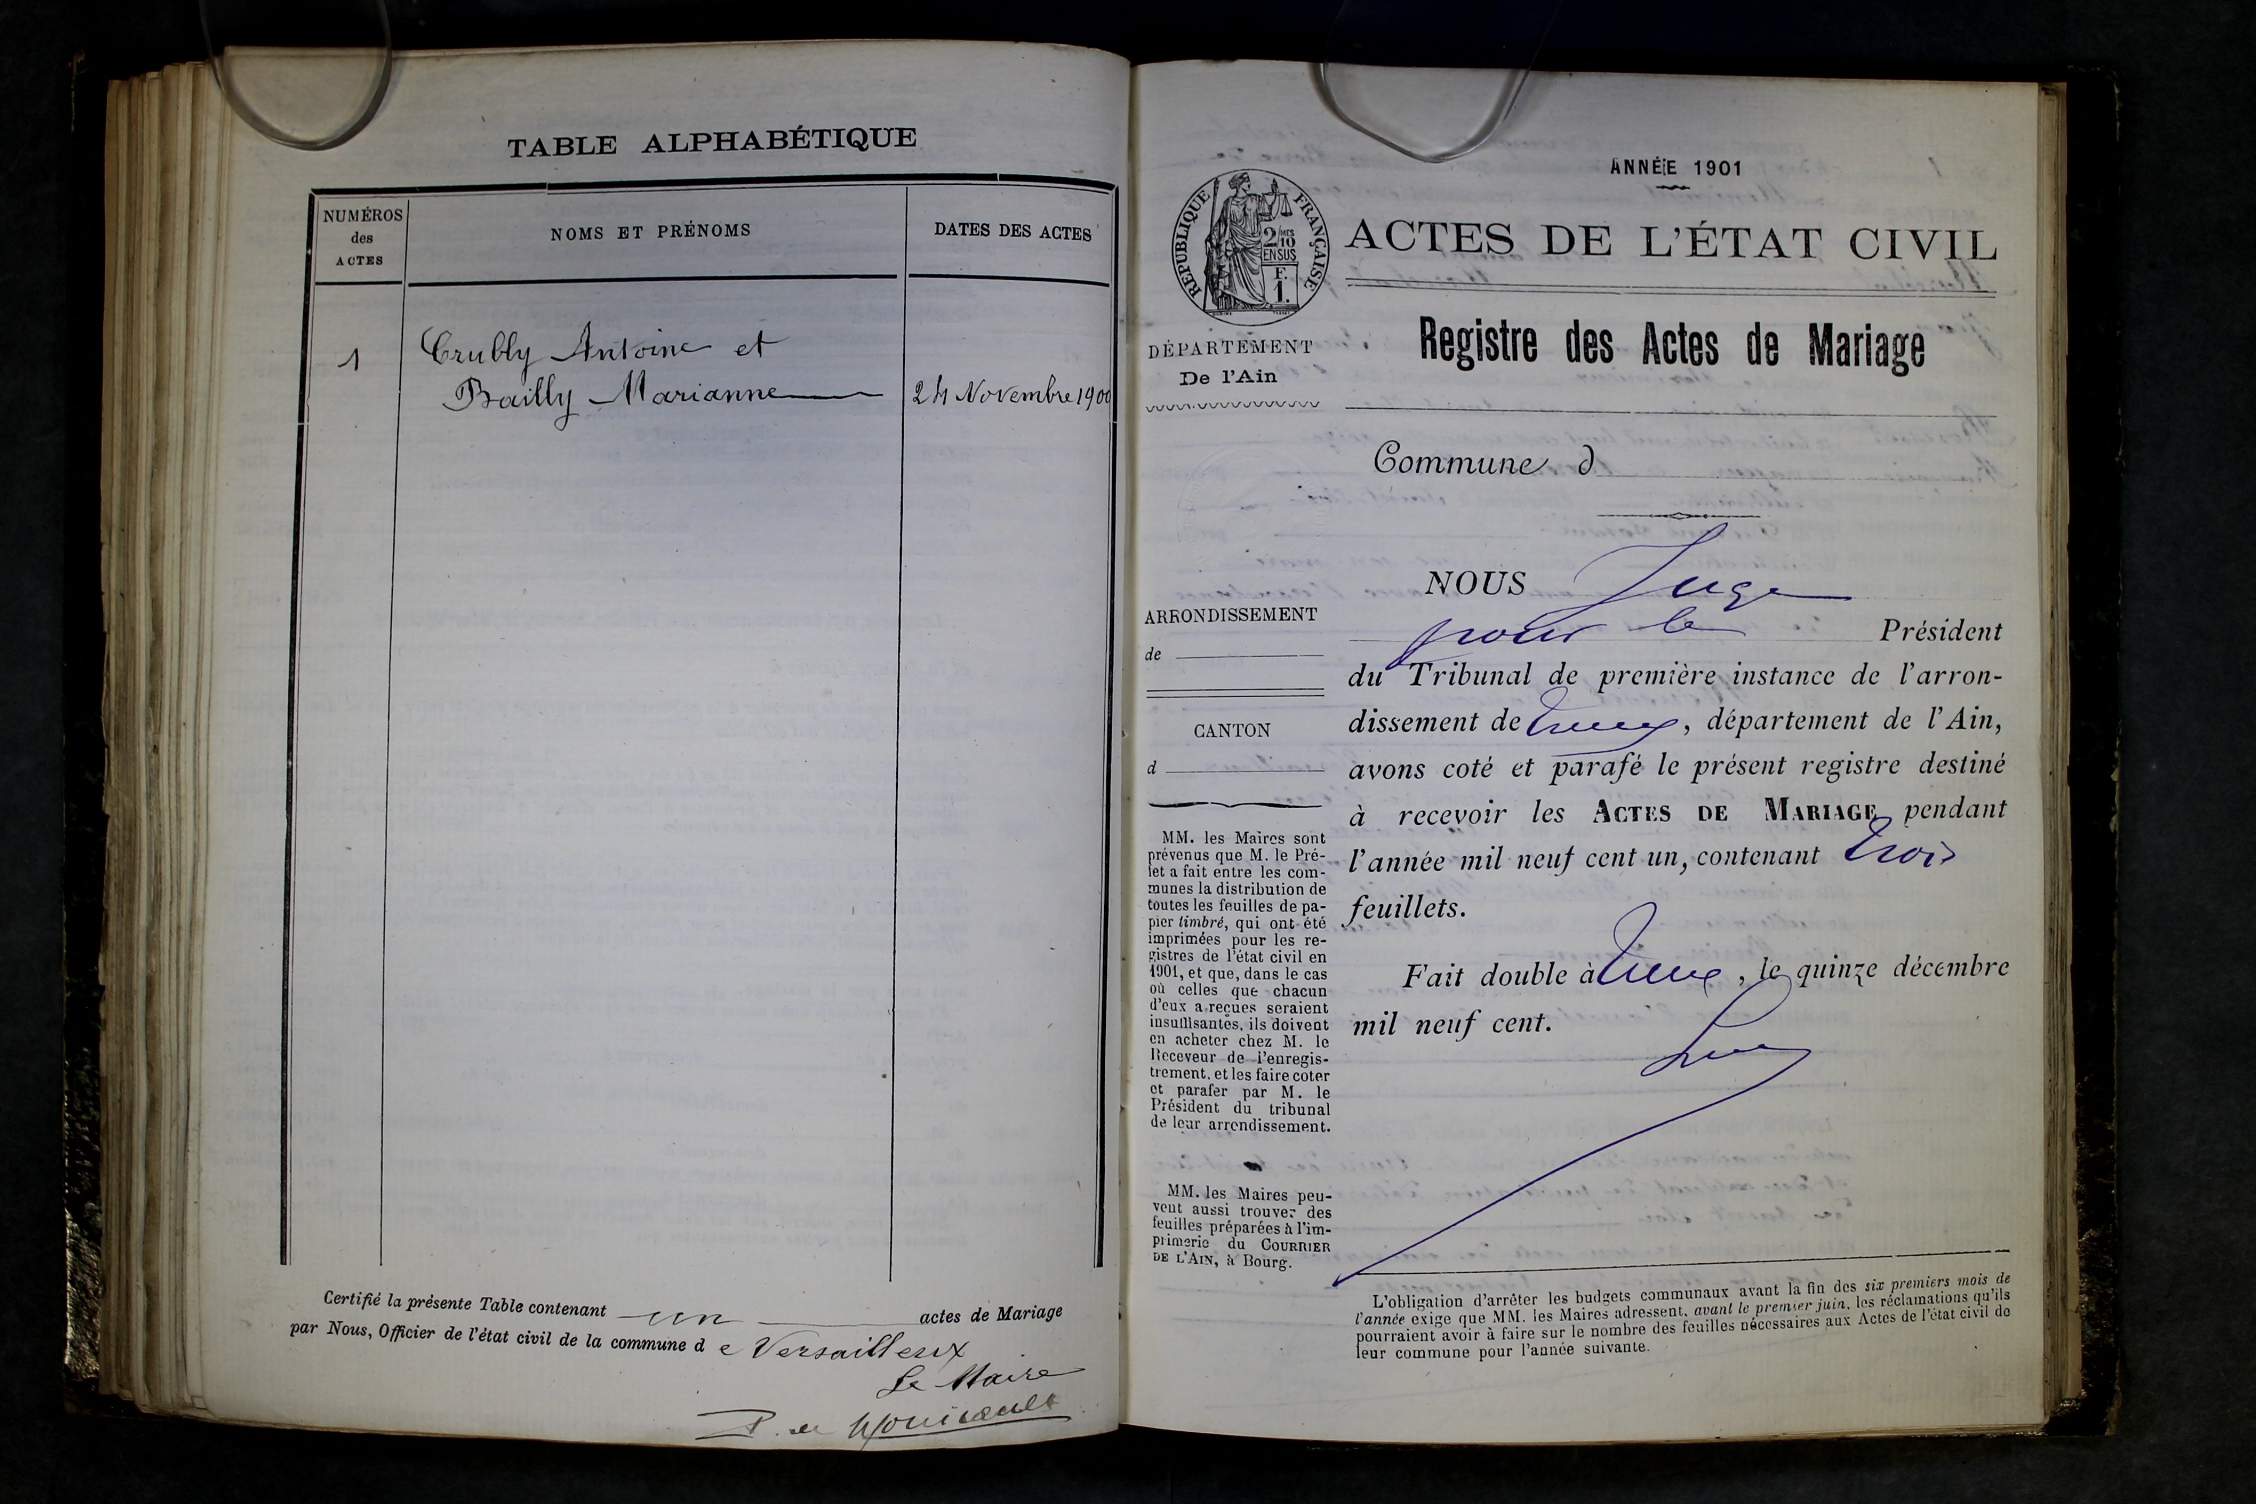 TABLE ALPHABÉTIQUE
NUMÉROS
des
ACTES
NOMS ET PRÉNOMS
DATES DES ACTES
1
Crubly Antoine et
Bailly Marianne
24 Novembre 1900
Certifié la présente Table contenant un actes de Mariage
par Nous, Officier de l'état civil de la commune de Versailleux
Le Maire
P. de Monicault
ANNÉE 1901
RÉPUBLIQUE FRANÇAISE
2/10
MES
EN SUS
F.
1.
ACTES DE L'ÉTAT CIVIL
DÉPARTEMENT
De l'Ain
Registre des Actes de Mariage
Commune d
ARRONDISSEMENT
de
CANTON
d
MM. les Maires sont
prévenus que M. le Pré-
fet a fait entre les com-
munes la distribution de
toutes les feuilles de pa-
pier timbré, qui ont été
imprimées pour les re-
gistres de l'état civil en
1901, et que, dans le cas
où celles que chacun
d'eux a reçues seraient
insuffisantes, ils doivent
en acheter chez M. le
Receveur de l'enregis-
trement, et les faire coter
et parafer par M. le
Président du tribunal
de leur arrondissement.
MM. les Maires peu-
vent aussi trouver des
feuilles préparées à l'im-
primerie du COURRIER
DE L'AIN, à Bourg.
NOUS Juge
pour le Président
du Tribunal de première instance de l'arron-
dissement de Trévoux, département de l'Ain,
avons coté et parafé le présent registre destiné
à recevoir les ACTES DE MARIAGE pendant
l'année mil neuf cent un, contenant trois
feuillets.
Fait double à Trévoux, le quinze décembre
mil neuf cent.
L'obligation d'arrêter les budgets communaux avant la fin des six premiers mois de
l'année exige que MM. les Maires adressent, avant le premier juin, les réclamations qu'ils
pourraient avoir à faire sur le nombre des feuilles nécessaires aux Actes de l'état civil de
leur commune pour l'année suivante.